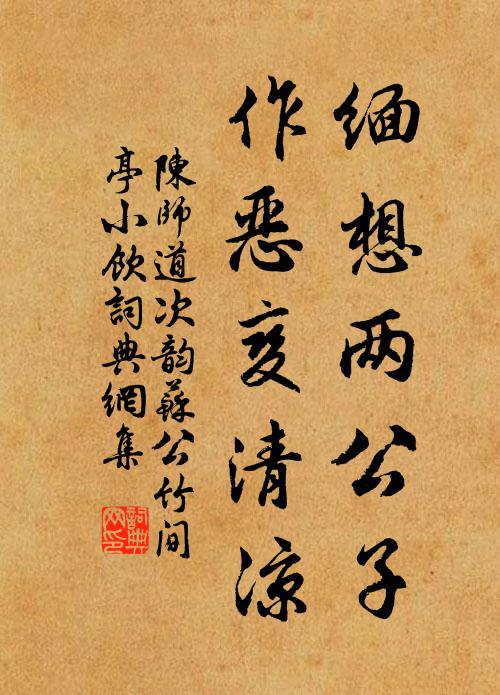 缅想两公子
作恶变清凉
陳師道次韵蘇公竹间
亭小飲詞典網集
詞典